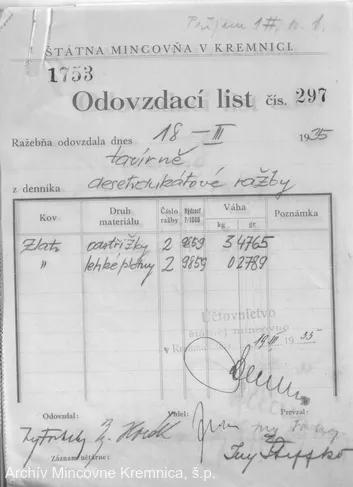 Príjem
ŠTÁTNA MINCOVŇA V KREMNICI.
1753
Odovzdací list čís. 297
Ražebňa odovzdala dnes 18-III 1935
tavírně
z denníka desetidukátové ražby
Kov Druh materiálu Číslo ražby Rýdzosť 1/1000 Váha kg gr Poznámka
Zlato odstřižky 2 9859 3 4765
" lehké plotny 2 9859 0 2789
Účtovníctvo
štátnej mincovne
v Kremnici 19.III. 1935
Odovzdal: Videl: Prevzal:
Záznam účtárne:
Archív Mincovne Kremnica, š.p.